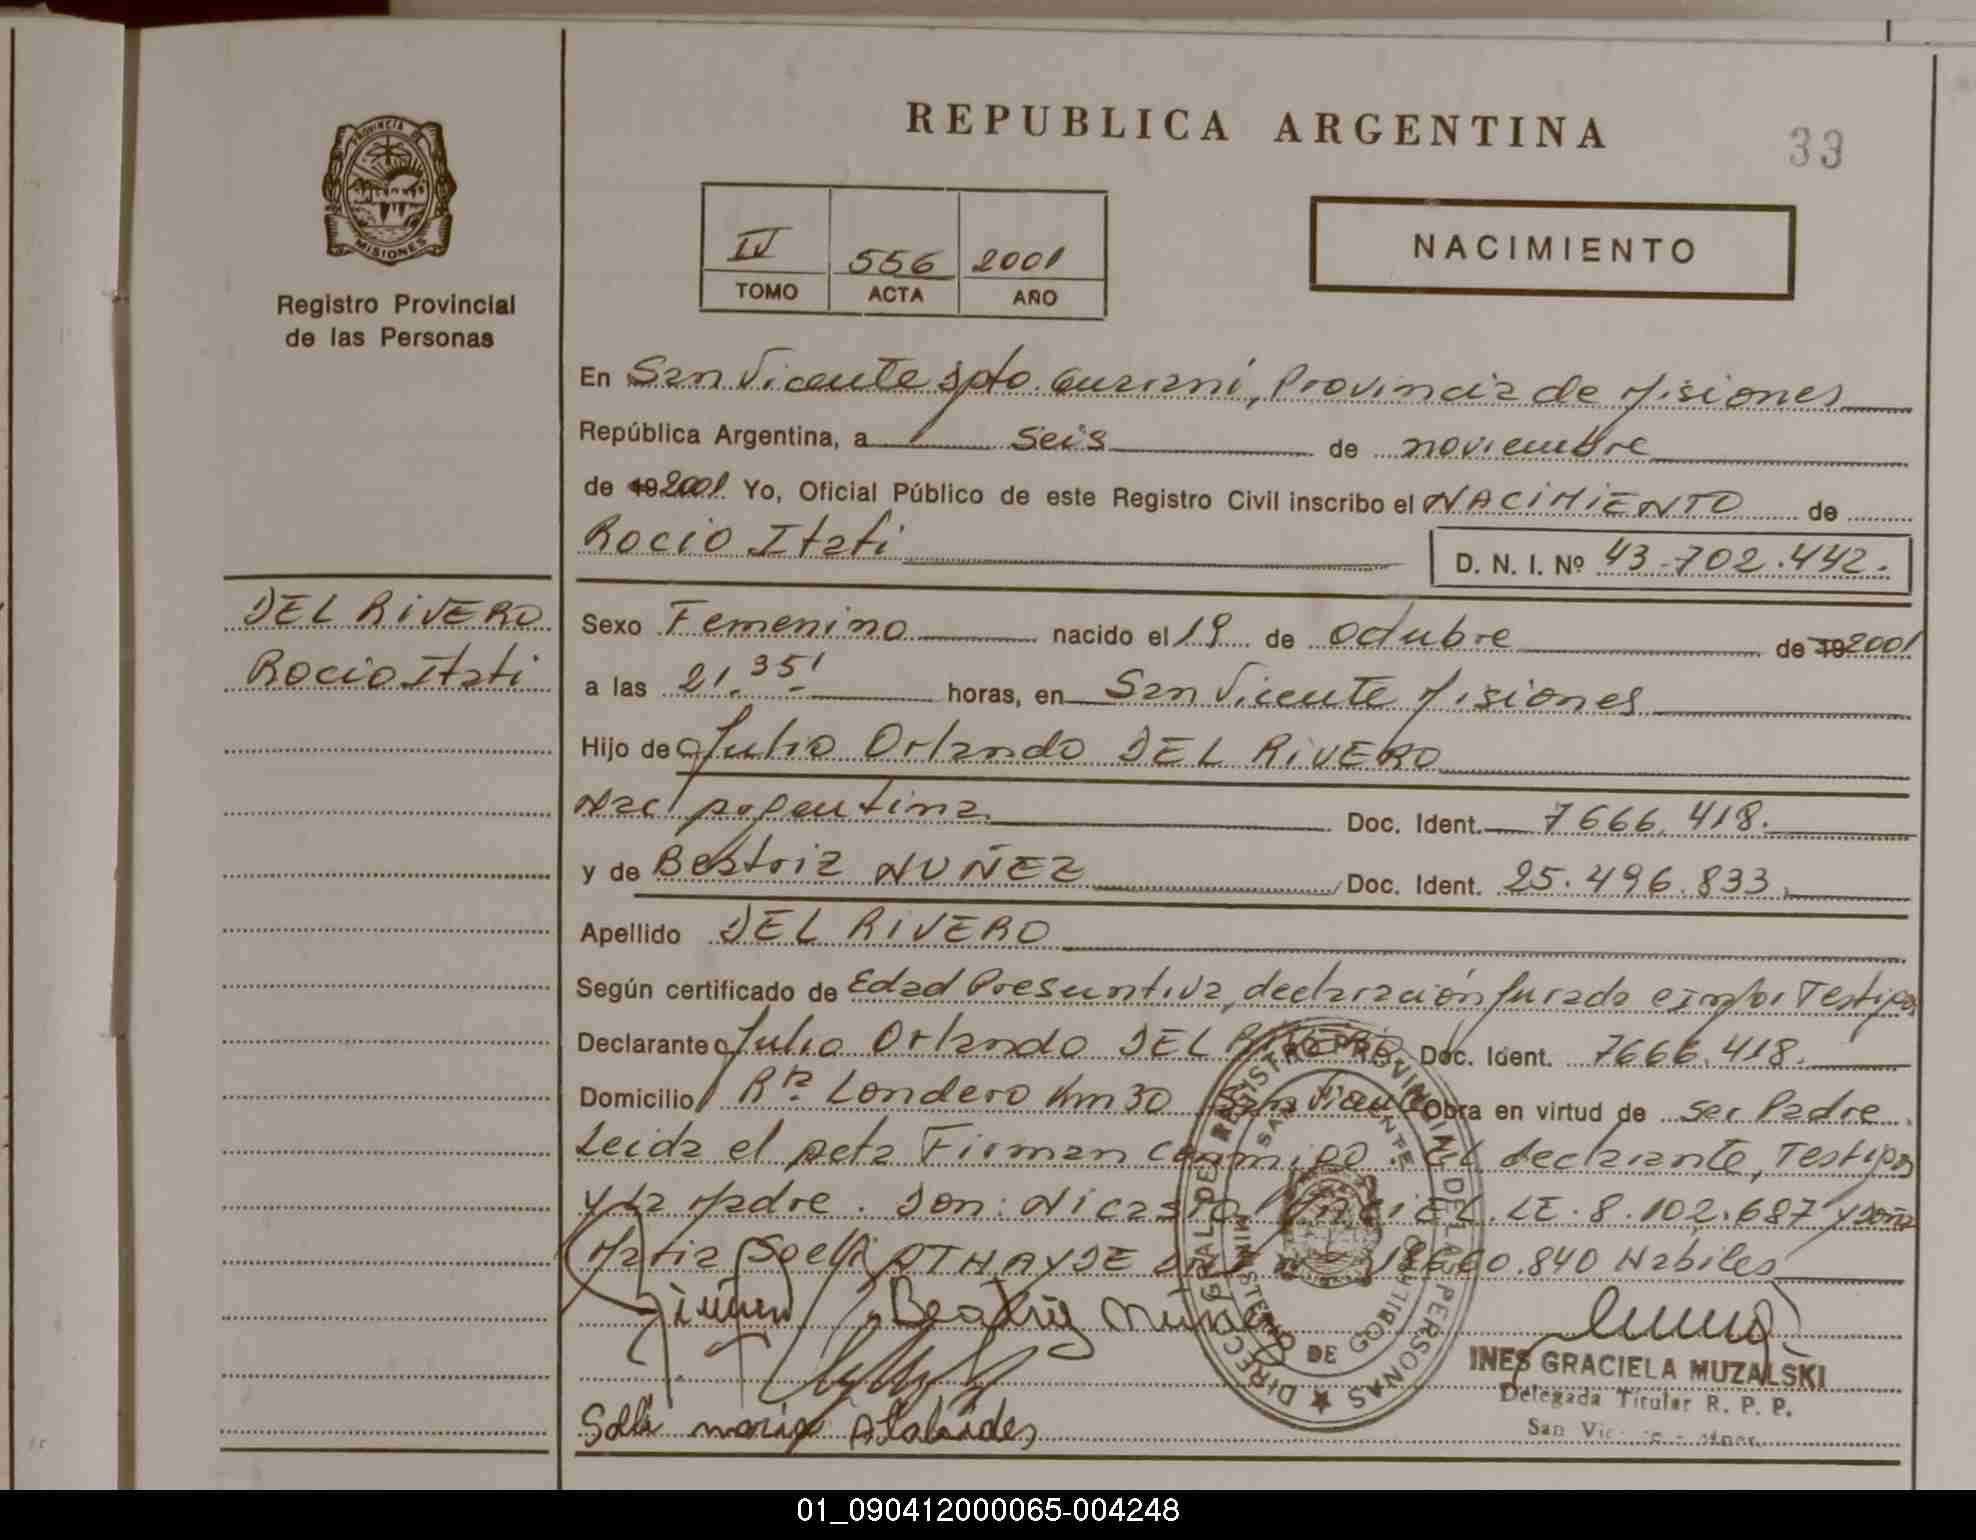 REPUBLICA ARGENTINA
33
PROVINCIA DE
MISIONES
Registro Provincial
de las Personas
IV 556 2001
TOMO ACTA AÑO
NACIMIENTO
En San Vicente Dpto. Guaraní, Provincia de Misiones
República Argentina, a Seis de noviembre
de 19 2001. Yo, Oficial Público de este Registro Civil inscribo el NACIMIENTO de
Rocio Itati
D. N. I. Nº 43.702.442.
DEL RIVERO
Rocio Itati
Sexo Femenino nacido el 19 de Octubre de 19 2001
a las 21.35' horas, en San Vicente Misiones
Hijo de Julio Orlando DEL RIVERO
Nac Argentina Doc. Ident. 7666.418.
y de Beatriz NUÑEZ Doc. Ident. 25.496.833.
Apellido DEL RIVERO
Según certificado de Edad Presuntiva, declaración Jurada Testigos
Declarante Julio Orlando DEL RIVERO Doc. Ident. 7666.418.
Domicilio Londero Km 30 San Vicente Obra en virtud de ser Padre.
Leida el Acta Firman conmigo El declarante, Testigos
y La Madre. Don: MACIEL. LE. 8.102.687 y Doña
Maria ATHAYDE 840 Habiles
Beatriz
DIRECC. GRAL DEL REGISTRO PROVINCIAL DE LAS PERSONAS
SAN VICENTE
MINISTERIO DE GOBIERNO
INES GRACIELA MUZALSKI
Delegada Titular R. P. P.
San
maria
01_090412000065-004248